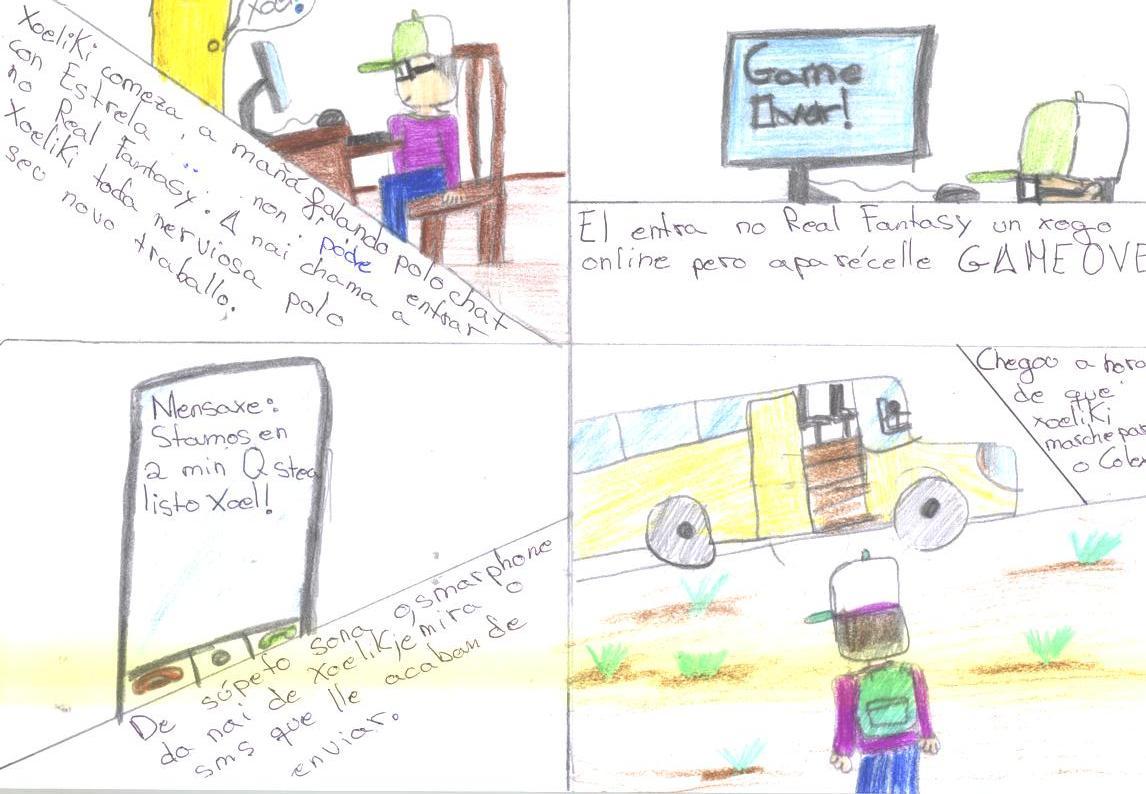 Xoel!
Xoeliki comeza, a mañá falando polo chat
con Estrela non pode entrar
no Real Fantasy. A nai chama a
Xoeliki toda nerviosa polo
seu novo traballo.
Game
Over!
El entra no Real Fantasy un xogo
online pero aparécelle GAME OVE
Mensaxe:
Stamos en
2 min Q stea
listo Xoel!
De súpeto sona o smarphone
da nai de Xoeliki e mira o
sms que lle acaban de
enviar.
Chegou a hora
de que
xoeliki
marche par
o Colex